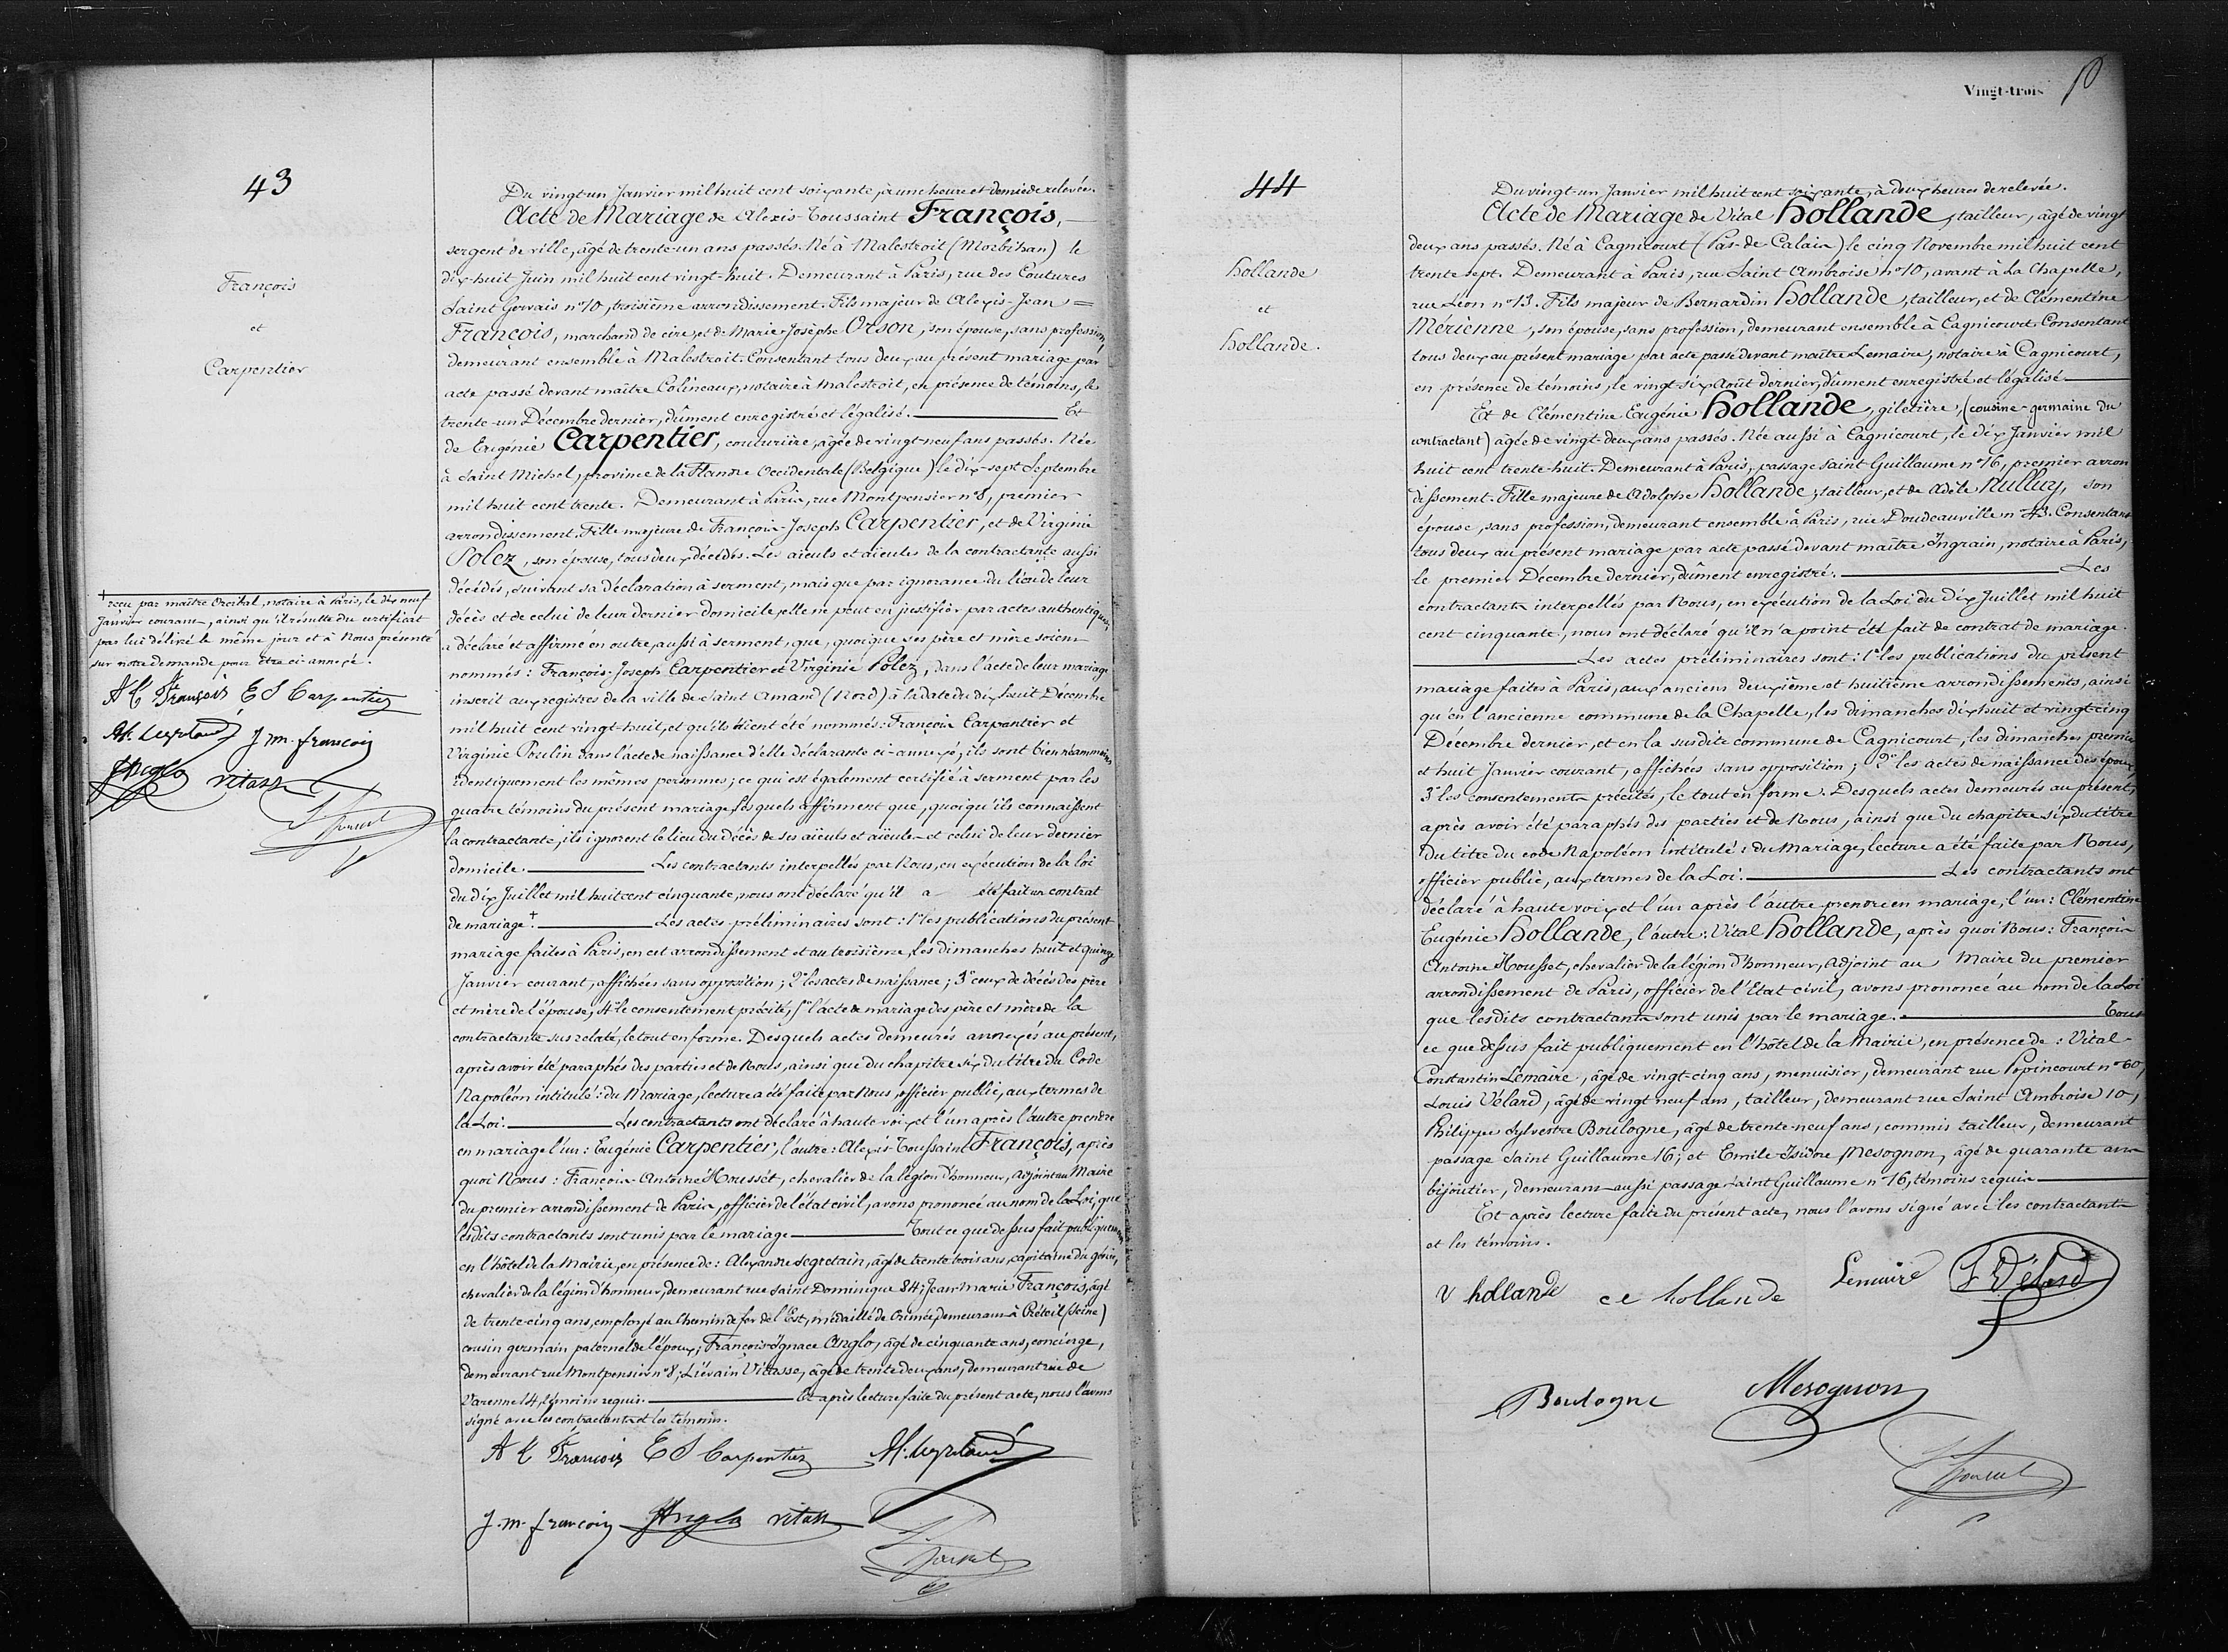 43
François
et
Carpentier
Du vingt-un Janvier mil huit cent soixante, à une heure et demie de relevée.
Acte de Mariage de Alexis-Toussaint François,
sergent de ville, âgé de trente-un ans passés. Né à Malestroit (Morbihan) le
dix-huit Juin mil huit cent vingt-huit. Demeurant à Paris, rue des Coutures
Saint Gervais n° 10, troisième arrondissement. Fils majeur de Alexis-Jean =
François, marchand de cire, et de Marie-Josèphe Orson, son épouse, sans profession,
demeurant ensemble à Malestroit. Consentant tous deux au présent mariage par
acte passé devant maître Colineaux, notaire à Malestroit, en présence de témoins, le
trente-un Décembre dernier, dûment enregistré et légalisé. Et
de Eugénie Carpentier, couturière, âgée de vingt-neuf ans passés. Née
à Saint Michel, province de la Flandre Occidentale (Belgique) le dix-sept Septembre
mil huit cent trente. Demeurant à Paris, rue Montpensier n° 8, premier
arrondissement. Fille majeure de François-Joseph Carpentier, et de Virginie
Polez, son épouse, tous deux décédés. Les aïeuls et aïeules de la contractante aussi
décédés, suivant sa déclaration à serment, mais que par ignorance du lieu de leur
décès et de celui de leur dernier domicile, elle ne peut en justifier par actes authentiques,
a déclaré et affirmé en outre, aussi à serment, que, quoique ses père et mère soient
nommés : François-Joseph Carpentier et Virginie Polez, dans l'acte de leur mariage
inscrit aux registres de la ville de Saint Amand (Nord) à la date du dix huit Décembre
mil huit cent vingt-huit, et qu'ils aient été nommés : François Carpentier et
Virginie Poulin dans l'acte de naissance d'elle déclarante ci-annexé, ils sont bien néanmoins
identiquement les mêmes personnes ; ce qui est également certifié à serment par les
quatre témoins du présent mariage, lesquels affirment que, quoiqu'ils connaissent
la contractante, ils ignorent le lieu du décès de ses aïeuls et aïeules et celui de leur dernier
domicile. Les contractants interpellés par Nous, en exécution de la loi
du dix Juillet mil huit cent cinquante, nous ont déclaré qu'il a été fait un contrat
de mariage +. Les actes préliminaires sont : 1° les publications du présent
mariage faites à Paris, en cet arrondissement et au troisième, les dimanches huit et quinze
Janvier courant, affichées sans opposition ; 2° les actes de naissance ; 3° ceux de décès des père
et mère de l'épouse, 4° le consentement précité, 5° l'acte de mariage des père et mère de la
contractante sus relaté, le tout en forme. Desquels actes demeurés annexés au présent,
après avoir été paraphés des parties et de Nous, ainsi que du chapitre six du titre du Code
Napoléon intitulé : du Mariage, lecture a été faite par Nous, officier public, aux termes de
la Loi. Les contractants ont déclaré à haute voix et l'un après l'autre prendre
en mariage l'un : Eugénie Carpentier, l'autre : Alexis-Toussaint François, après
quoi Nous : François-Antoine Housset, chevalier de la légion d'honneur, Adjoint au Maire
du premier arrondissement de Paris, officier de l'état civil, avons prononcé au nom de la Loi, que
lesdits contractants sont unis par le mariage. Tout ce que dessus fait publiquement
en l'hôtel de la Mairie, en présence de : Alexandre Segretain, âgé de trente trois ans, capitaine du génie,
chevalier de la légion d'honneur, demeurant rue Saint Dominique 84 ; Jean-Marie François, âgé
de trente-cinq ans, employé au Chemin de fer de l'Est, médaillé de Crimée, demeurant à Créteil (Seine)
cousin germain paternel de l'époux ; François-Ignace Anglo, âgé de cinquante ans, concierge,
demeurant rue Montpensier n° 8 ; Liévain Vitasse, âgé de trente deux ans, demeurant rue de
Varenne 14, témoins requis. Et après lecture faite du présent acte, nous l'avons
signé avec les contractants et les témoins.
A T François E S Carpentier
J. M. françois Anglo vitasse
+ reçu par maître Crcibal, notaire à Paris, le dix neuf
Janvier courant, ainsi qu'il résulte du certificat
par lui délivré le même jour et à Nous présenté
sur notre demande pour être ci-annexé.
A T François E S Carpentier
J. M. françois
Anglo vitasse
Vingt-trois
44
Hollande
et
Hollande.
Du vingt-un Janvier mil huit cent soixante, à deux heures de relevée.
Acte de Mariage de Vital Hollande, tailleur, âgé de vingt
deux ans passés. Né à Cagnicourt (Pas-de Calais) le cinq Novembre mil huit cent
trente sept. Demeurant à Paris, rue Saint Ambroise n° 10, avant à La Chapelle,
rue Léon n° 13. Fils majeur de Bernardin Hollande, tailleur, et de Clémentine
Mérienne, son épouse, sans profession, demeurant ensemble à Cagnicourt Consentant
tous deux au présent mariage par acte passé devant maître Lemaire, notaire à Cagnicourt,
en présence de témoins, le vingt-six Août dernier, dûment enregistré et légalisé.
Et de Clémentine Eugénie Hollande, giletière, (cousine-germaine du
contractant) âgée de vingt-deux ans passés. Née aussi à Cagnicourt, le dix Janvier mil
huit cent trente-huit. Demeurant à Paris, passage Saint Guillaume n° 16, premier arron
dissement. Fille majeure de Adolphe Hollande, tailleur, et de Adèle Nulluy, son
épouse, sans profession, demeurant ensemble à Paris, rue Doudeauville n° 43. Consentant
tous deux au présent mariage par acte passé devant maître Ingrain, notaire à Paris,
le premier Décembre dernier, dûment enregistré. Les
contractants interpellés par Nous, en exécution de la Loi du Dix Juillet mil huit
cent cinquante, nous ont déclaré qu'il n'a point été fait de contrat de mariage.
Les actes préliminaires sont : 1° les publications du présent
mariage faites à Paris, aux anciens deuxième et huitième arrondissements, ainsi
qu'en l'ancienne commune de la Chapelle, les dimanches dix huit et vingt-cinq
Décembre dernier, et en la susdite commune de Cagnicourt, les dimanches premier
et huit Janvier courant, affichées sans opposition ; 2° les actes de naissance des époux,
3° les consentements précités, le tout en forme. Desquels actes demeurés au présent,
après avoir été paraphés des parties et de Nous, ainsi que du chapitre six du titre
du titre du code Napoléon intitulé : du Mariage, lecture a été faite par Nous,
officier public, aux termes de la Loi. Les contractants ont
déclaré à haute voix et l'un après l'autre prendre en mariage, l'un : Clémentine
Eugénie Hollande, l'autre : Vital Hollande, après quoi Nous : François
Antoine Housset, chevalier de la légion d'honneur, Adjoint au Maire du premier
arrondissement de Paris, officier de l'Etat civil, avons prononcé au nom de la Loi
que lesdits contractants sont unis par le mariage. Tout
ce que dessus fait publiquement en l'hôtel de la Mairie, en présence de : Vital-
Constantin Lemaire, âgé de vingt-cinq ans, menuisier, demeurant rue Popincourt n° 60,
Louis Vélard, âgé de vingt neuf ans, tailleur, demeurant rue Saint Ambroise 10,
Philippe Sylvestre Boulogne, âgé de trente-neuf ans, commis tailleur, demeurant
passage Saint Guillaume 16, et Emile-Isidore Mesognon, âgé de quarante ans
bijoutier, demeurant aussi passage Saint Guillaume n° 16, témoins requis
Et après lecture faite du présent acte, nous l'avons signé avec les contractants
et les témoins.
V hollande ce hollande Lemaire L Vélard
Boulogne Mesognon